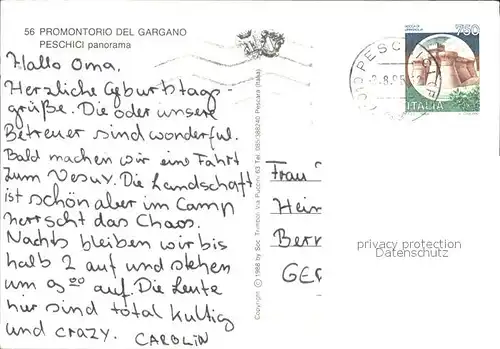 56 PROMONTORIO DEL GARGANO
PESCHICI panorama
Hallo Oma,
Herzliche Geburtstags-
grüße. Die oder unsere
Betreuer sind wonderful.
Bald machen wir eine Fahrt
zum Vesuv. Die Landschaft
ist schön aber im Camp
herrscht das Chaos.
Nachts bleiben wir bis
halb 2 auf und stehen
um 9³⁰ auf. Die Leute
hier sind total kultig
und crazy. CAROLIN
Copyright © 1988 by Soc. Trimboli Via Puccini 63 Tel. 085/388240 Pescara (Italia)
750
ITALIA
PESC
Frau
Hein
Berr
GER
privacy protection
Datenschutz